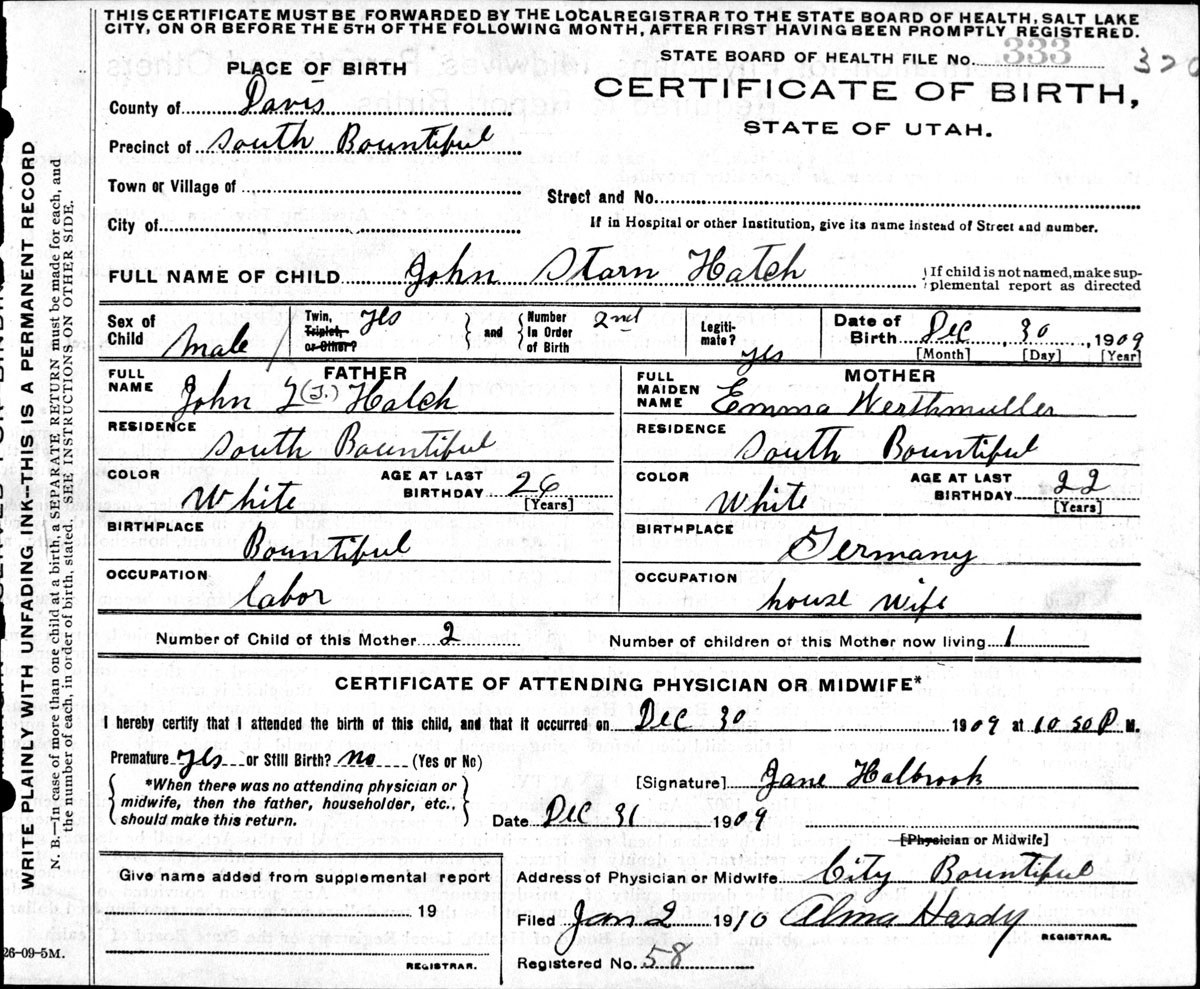 THIS CERTIFICATE MUST BE FORWARDED BY THE LOCAL REGISTRAR TO THE STATE BOARD OF HEALTH, SALT LAKE
CITY, ON OR BEFORE THE 5TH OF THE FOLLOWING MONTH, AFTER FIRST HAVING BEEN PROMPTLY REGISTERED.
STATE BOARD OF HEALTH FILE No. 333 320
PLACE OF BIRTH
CERTIFICATE OF BIRTH,
STATE OF UTAH.
County of Davis
Precinct of South Bountiful
Town or Village of
Street and No.
City of
If in Hospital or other Institution, give its name instead of Street and number.
FULL NAME OF CHILD John Starn Hatch
If child is not named, make supplemental report as directed
Sex of Child Male
Twin, Triplet, or Other? Yes
and
Number In Order of Birth 2nd
Legitimate? yes
Date of Birth Dec 30 1909
[Month] [Day] [Year]
FATHER
FULL NAME John L (J.) Hatch
RESIDENCE South Bountiful
COLOR White
AGE AT LAST BIRTHDAY 26 [Years]
BIRTHPLACE Bountiful
OCCUPATION labor
MOTHER
FULL MAIDEN NAME Emma Werthmuller
RESIDENCE South Bountiful
COLOR White
AGE AT LAST BIRTHDAY 22 [Years]
BIRTHPLACE Germany
OCCUPATION house wife
Number of Child of this Mother 2
Number of children of this Mother now living 1
CERTIFICATE OF ATTENDING PHYSICIAN OR MIDWIFE*
I hereby certify that I attended the birth of this child, and that it occurred Dec 30 1909 at 10.30 P M.
Premature yes or Still Birth? no (Yes or No)
*When there was no attending physician or
midwife, then the father, householder, etc.,
should make this return.
[Signature] Jane Holbrook
Date Dec 31 1909
[Physician or Midwife]
Give name added from supplemental report
19
REGISTRAR.
Address of Physician or Midwife City Bountiful
Filed Jan 2 1910 Alma Hardy
REGISTRAR.
Registered No. 58
26-09-5M.
WRITE PLAINLY WITH UNFADING INK--THIS IS A PERMANENT RECORD
N. B.—In case of more than one child at a birth, SEPARATE RETURN must be made for each, and
the number of each, in order of birth, stated. SEE INSTRUCTIONS ON OTHER SIDE.